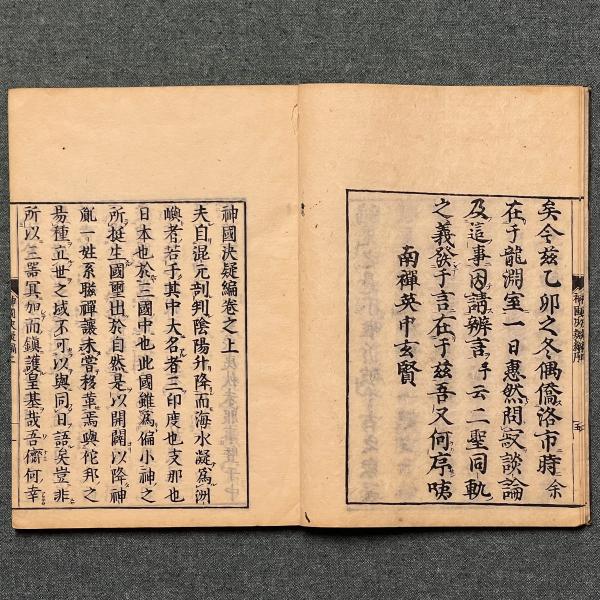 矣今玆乙卯之冬偶僑洛市時余
在于龍淵室一日惠然問寂談論
及這事因請辨言予云二聖同軌
之義發于言在于玆吾又何序咦
南禪英中玄賢
神國決疑編卷之上
夫自混元剖判陰陽升降而海水凝爲洲
嶼者若干其中大名者三印度也支那也
日本也於三國中也此國雖爲偏小神之
所挺生國璽出於自然是以開闢以降神
胤一姓系聯禪讓未嘗移革焉與佗邦之
昜種立世之域不可以與同日語矣豈非
所以三器冥加而鎭護皇基哉吾儕何幸